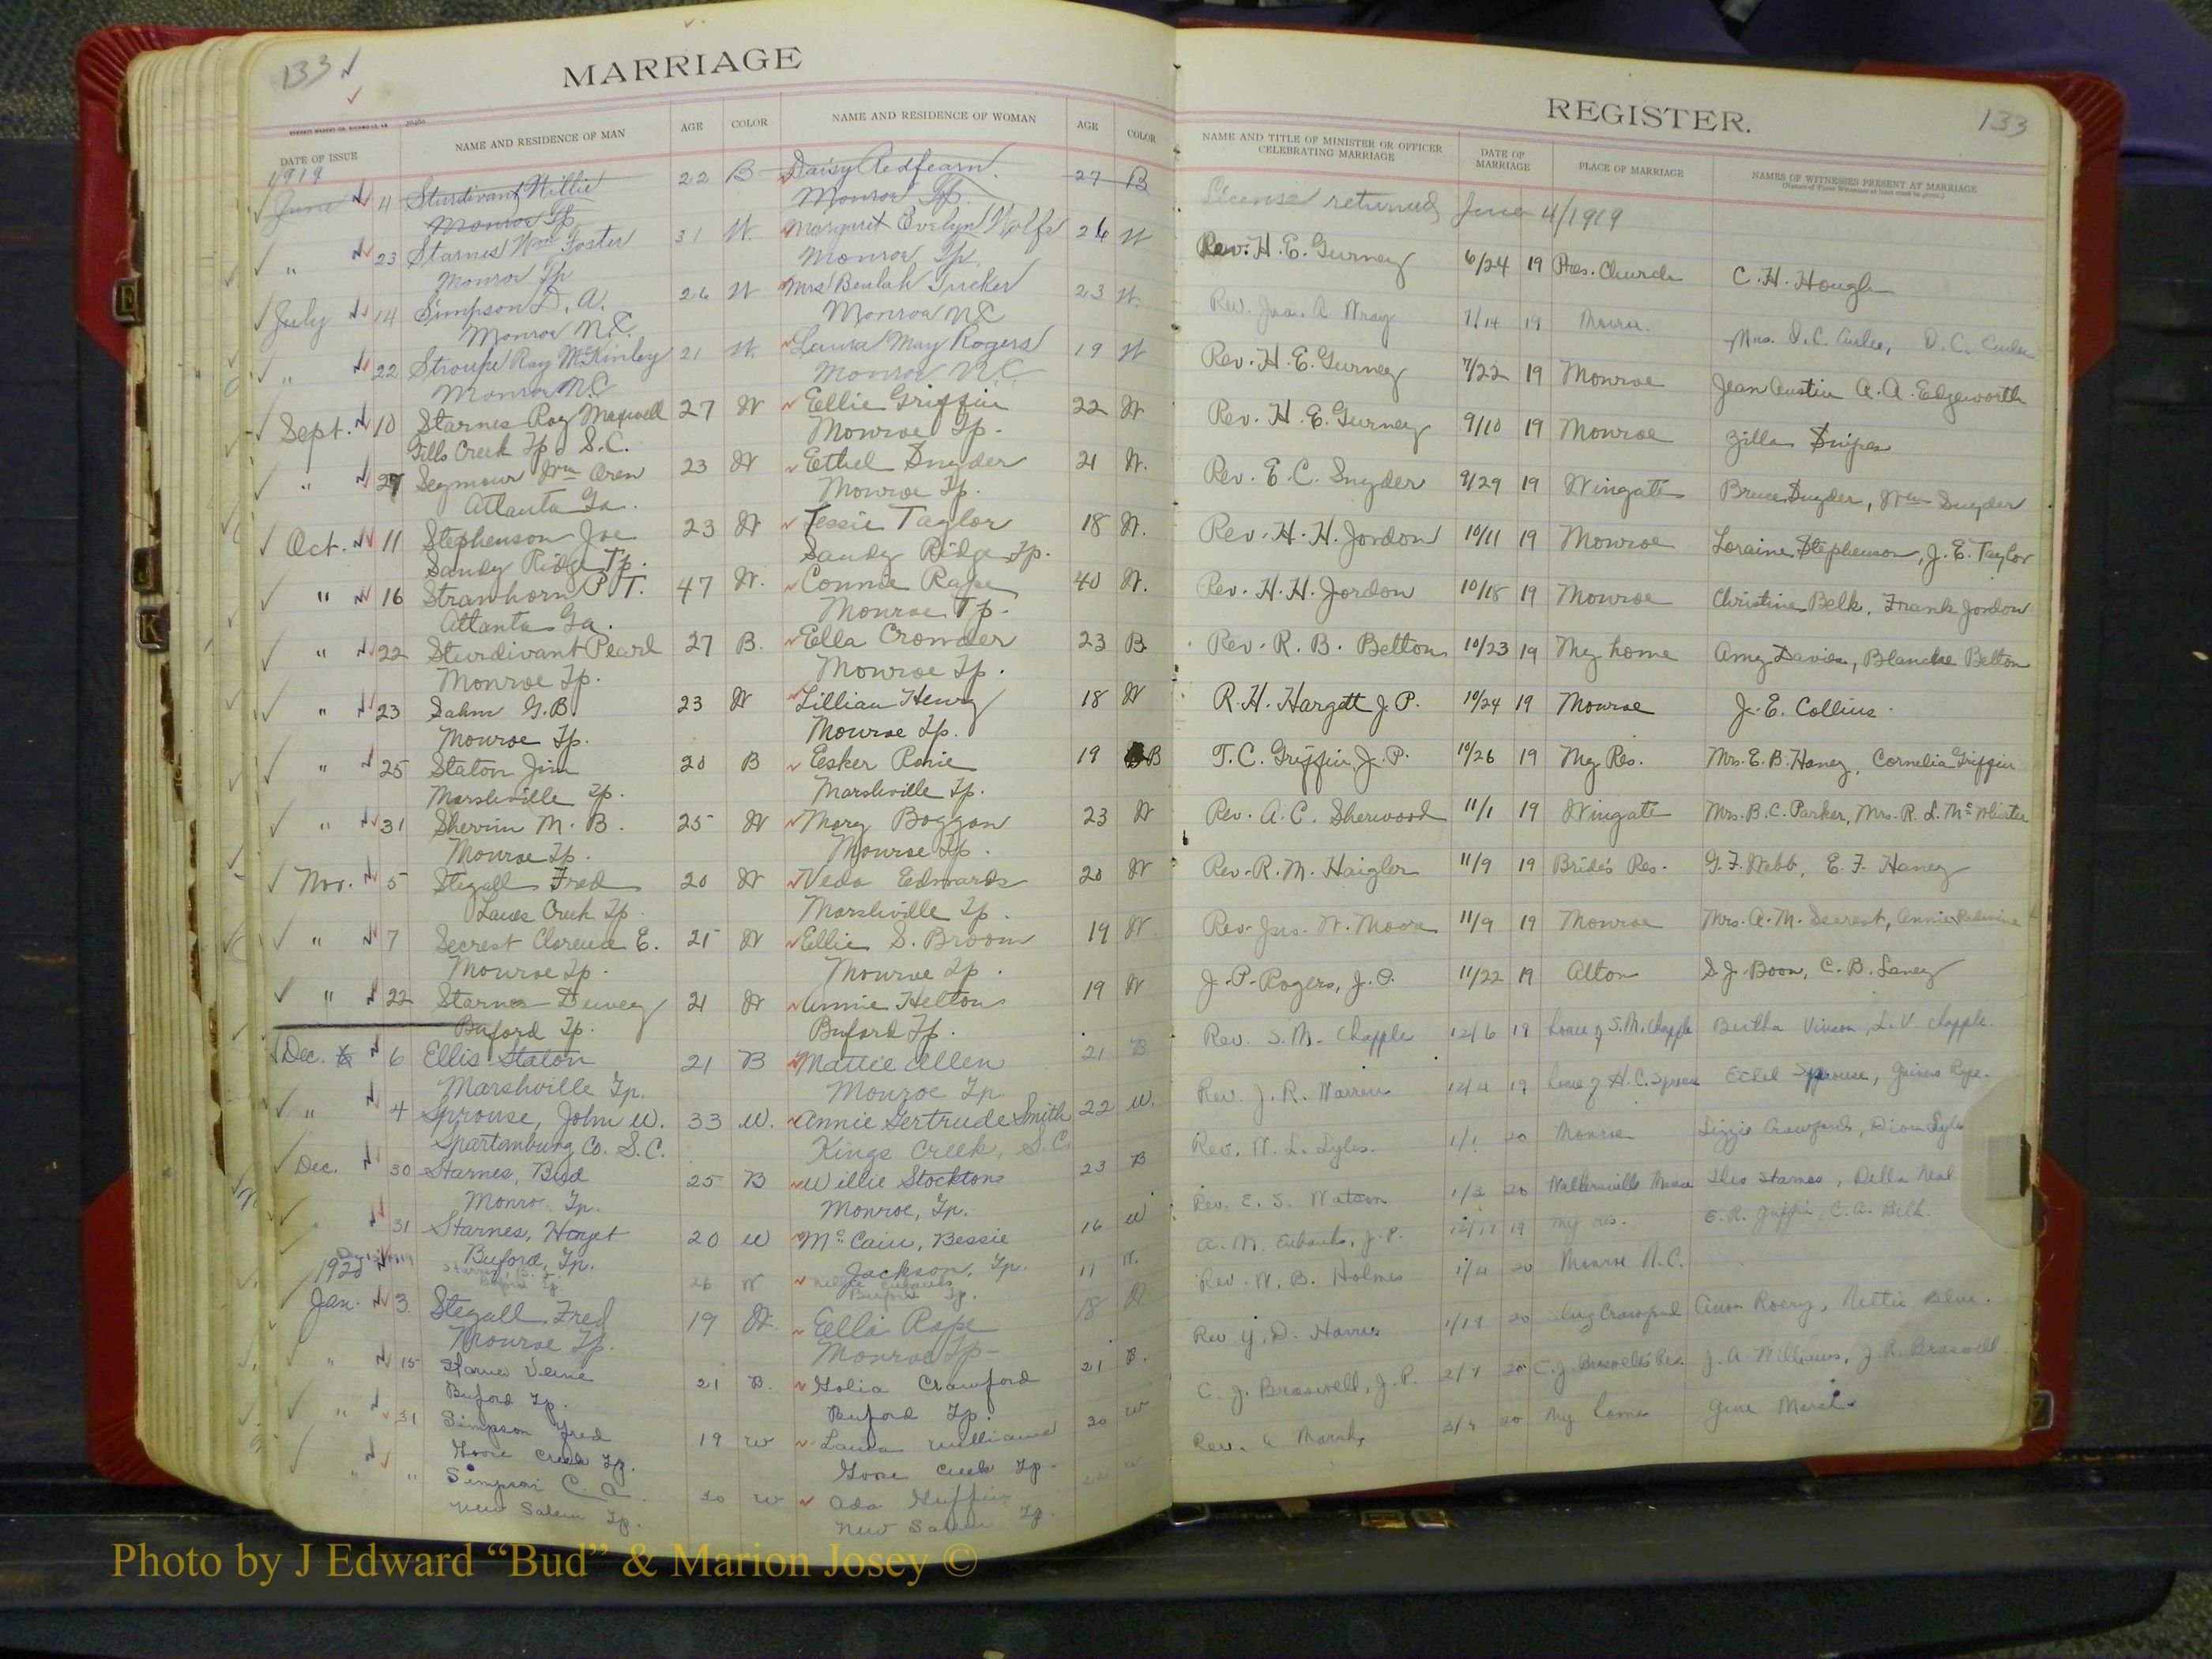 133
MARRIAGE
DATE OF ISSUE NAME AND RESIDENCE OF MAN AGE COLOR NAME AND RESIDENCE OF WOMAN AGE COLOR
1919
June 4 Sturdivant Willie 22 B Daisy Redfearn 27 B
Monroe Tp. Monroe Tp.
" 23 Starnes Wm Foster 31 W. Margaret Evelyn Wolfe 26 W
Monroe Tp Monroe Tp.
July 14 Simpson D. A. 26 W Mrs Beulah Tucker 23 W.
Monroe N.C. Monroe N.C
" 22 Stroupe Ray McKinley 21 W. Laura May Rogers 19 W
Monroe N.C Monroe N.C.
Sept. 10 Starnes Roy Maxwell 27 W Ellie Griffin 22 W
Gills Creek Tp. S.C. Monroe Tp.
" 27 Seymour Wm Oren 23 W Ethel Snyder 21 W.
Atlanta Ga. Monroe Tp.
Oct. 11 Stephenson Joe 23 W Jessie Taylor 18 W.
Sandy Ridge Tp. Sandy Ridge Tp.
" 16 Strawhorn P. T. 47 W. Connie Rape 40 W.
Atlanta Ga. Monroe Tp.
" 22 Sturdivant Pearl 27 B. Ella Crowder 23 B.
Monroe Tp. Monroe Tp.
" 23 Sahm G. B. 23 W Lillian Henry 18 W
Monroe Tp. Monroe Tp.
" 25 Staton Jim 20 B Esker 19 B
Marshville Tp. Marshville Tp.
" 31 Shervin M. B. 25 W Mary Boggan 23 W
Monroe Tp. Monroe Tp.
Nov. 5 Stegall Fred 20 W Veda Edwards 20 W
Lanes Creek Tp. Marshville Tp.
" 7 Secrest Clarence E. 21 W Ellie S. Broom 19 W
Monroe Tp. Monroe Tp.
" 22 Starnes Duvey 21 W Annie Helton 19 W
Buford Tp. Buford Tp.
Dec. 6 Ellis Staton 21 B Mattie Allen 21 B
Marshville Tp. Monroe Tp.
" 4 Sprouse, John W. 33 W. Annie Gertrude Smith 22 W.
Spartanburg Co. S.C. Kings Creek, S.C.
Dec. 30 Starnes, Bud 25 B Willie Stockton 23 B
Monroe Tp. Monroe, Tp.
31 Starnes, Hoyet 20 W McCain, Bessie 16 W
Buford, Tp. Jackson, Tp.
26 W 17 W.
1920 Buford Tp. Buford Tp.
Jan. 3. Stegall Fred 19 W. Ella Rape 18 W
Monroe Tp. Monroe Tp-
" 15 Starnes Verne 21 B. Golia Crawford 21 B.
Buford Tp. Buford Tp.
" 31 Simpson Fred 19 W Laura Williams 20 W
Goose Creek Tp. Goose Creek Tp.
" " Simpson C. A. 20 W Ada Griffin
New Salem Tp. New Salem Tp.
REGISTER. 133
NAME AND TITLE OF MINISTER OR OFFICER CELEBRATING MARRIAGE DATE OF MARRIAGE PLACE OF MARRIAGE NAMES OF WITNESSES PRESENT AT MARRIAGE
(Names of Three Witnesses at least must be given.)
License returned June 4/1919
Rev. H. E. Gurney 6/24 19 Pres. Church C. H. Hough
Rev. Jno. A Wray 7/14 19 Monroe. Mrs. D. C. Curlee, D. C. Curlee
Rev. H. E. Gurney 7/22 19 Monroe Jean Austin A. A. Edgeworth
Rev. H. E. Gurney 9/10 19 Monroe Zilla Snipes
Rev. E. C. Snyder 9/29 19 Wingate Bruce Snyder, Wm Snyder
Rev. H. H. Jordon 10/11 19 Monroe Loraine Stephenson, J. E. Taylor
Rev. H. H. Jordon 10/18 19 Monroe Christine Belk, Frank Jordon
Rev. R. B. Belton 10/23 19 My home Amy Davis, Blanche Belton
R. H. Hargett J. P. 10/24 19 Monroe J. E. Collins.
T. C. Griffin, J. P. 10/26 19 My Res. Mrs. E. B. Haney, Cornelia Griffin
Rev. A. C. Sherwood 11/1 19 Wingate Mrs. B. C. Parker, Mrs. R. L. McWhirter
Rev. R. M. Haigler 11/9 19 Bride's Res. G. F. Webb, E. F. Haney
Rev. Jas. W. Moore 11/9 19 Monroe Mrs. A. M. Secrest, Annie Redwine
J. P. Rogers, J. P. 11/22 19 Alton S. J. Boon, C. B. Laney
Rev. S. M. Chapple 12/6 19 home of S. M. Chapple Bertha Vinson, L. V. Chapple
Rev. J. R. Warren 12/4 19 home of H. C. Sprouse Ethel Sprouse,
Rev. W. L. Lyles. 1/1 20 Monroe Lizzie Crawford,
Rev. E. S. Watson 1/3 20 Monroe Starnes, Della Neal
A. M. Eubanks, J. P. 12/17 19 my res. E. R. Griffin, C. A. Belk.
Rev. W. B. Holmes 1/4 20 Monroe N.C.
Rev. Y. D. Harris 1/17 20 Crawford Nettie Blue.
C. J. Braswell, J. P. 2/7 20 C. J. Braswell's Res. J. A. Williams, J. R. Braswell.
Rev. Marsh, 20 My home Marsh
E
J
K
Photo by J Edward “Bud” & Marion Josey ©